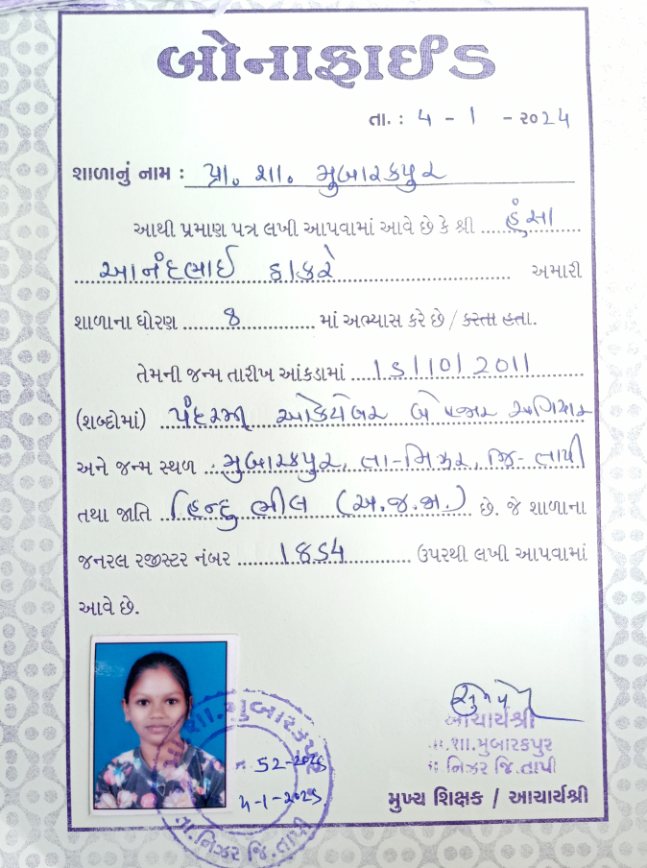 બોનાફાઈડ
તા. : 4 - 1 - ૨૦24
શાળાનું નામ : પ્રા. શા. મુબારકપુર
આથી પ્રમાણ પત્ર લખી આપવામાં આવે છે કે શ્રી હંસા
આનંદભાઈ ઠાકરે અમારી
શાળાના ધોરણ 8 માં અભ્યાસ કરે છે / કરતા હતા.
તેમની જન્મ તારીખ આંકડામાં 15/10/2011
(શબ્દોમાં) પંદરમી ઓક્ટોબર બે હજાર અગિયાર
અને જન્મ સ્થળ મુબારકપુર, તા-નિઝર, જિ- તાપી
તથા જાતિ હિન્દુ ભીલ (અ.જ.જા.) છે. જે શાળાના
જનરલ રજીસ્ટર નંબર 1854 ઉપરથી લખી આપવામાં
આવે છે.
શા.મુબારકપુર
52-2025
4-1-૨૦૨5
તા.નિઝર જિ.તાપી
આચાર્યશ્રી
પ્રા.શા.મુબારકપુર
તા.નિઝર જિ.તાપી
મુખ્ય શિક્ષક / આચાર્યશ્રી